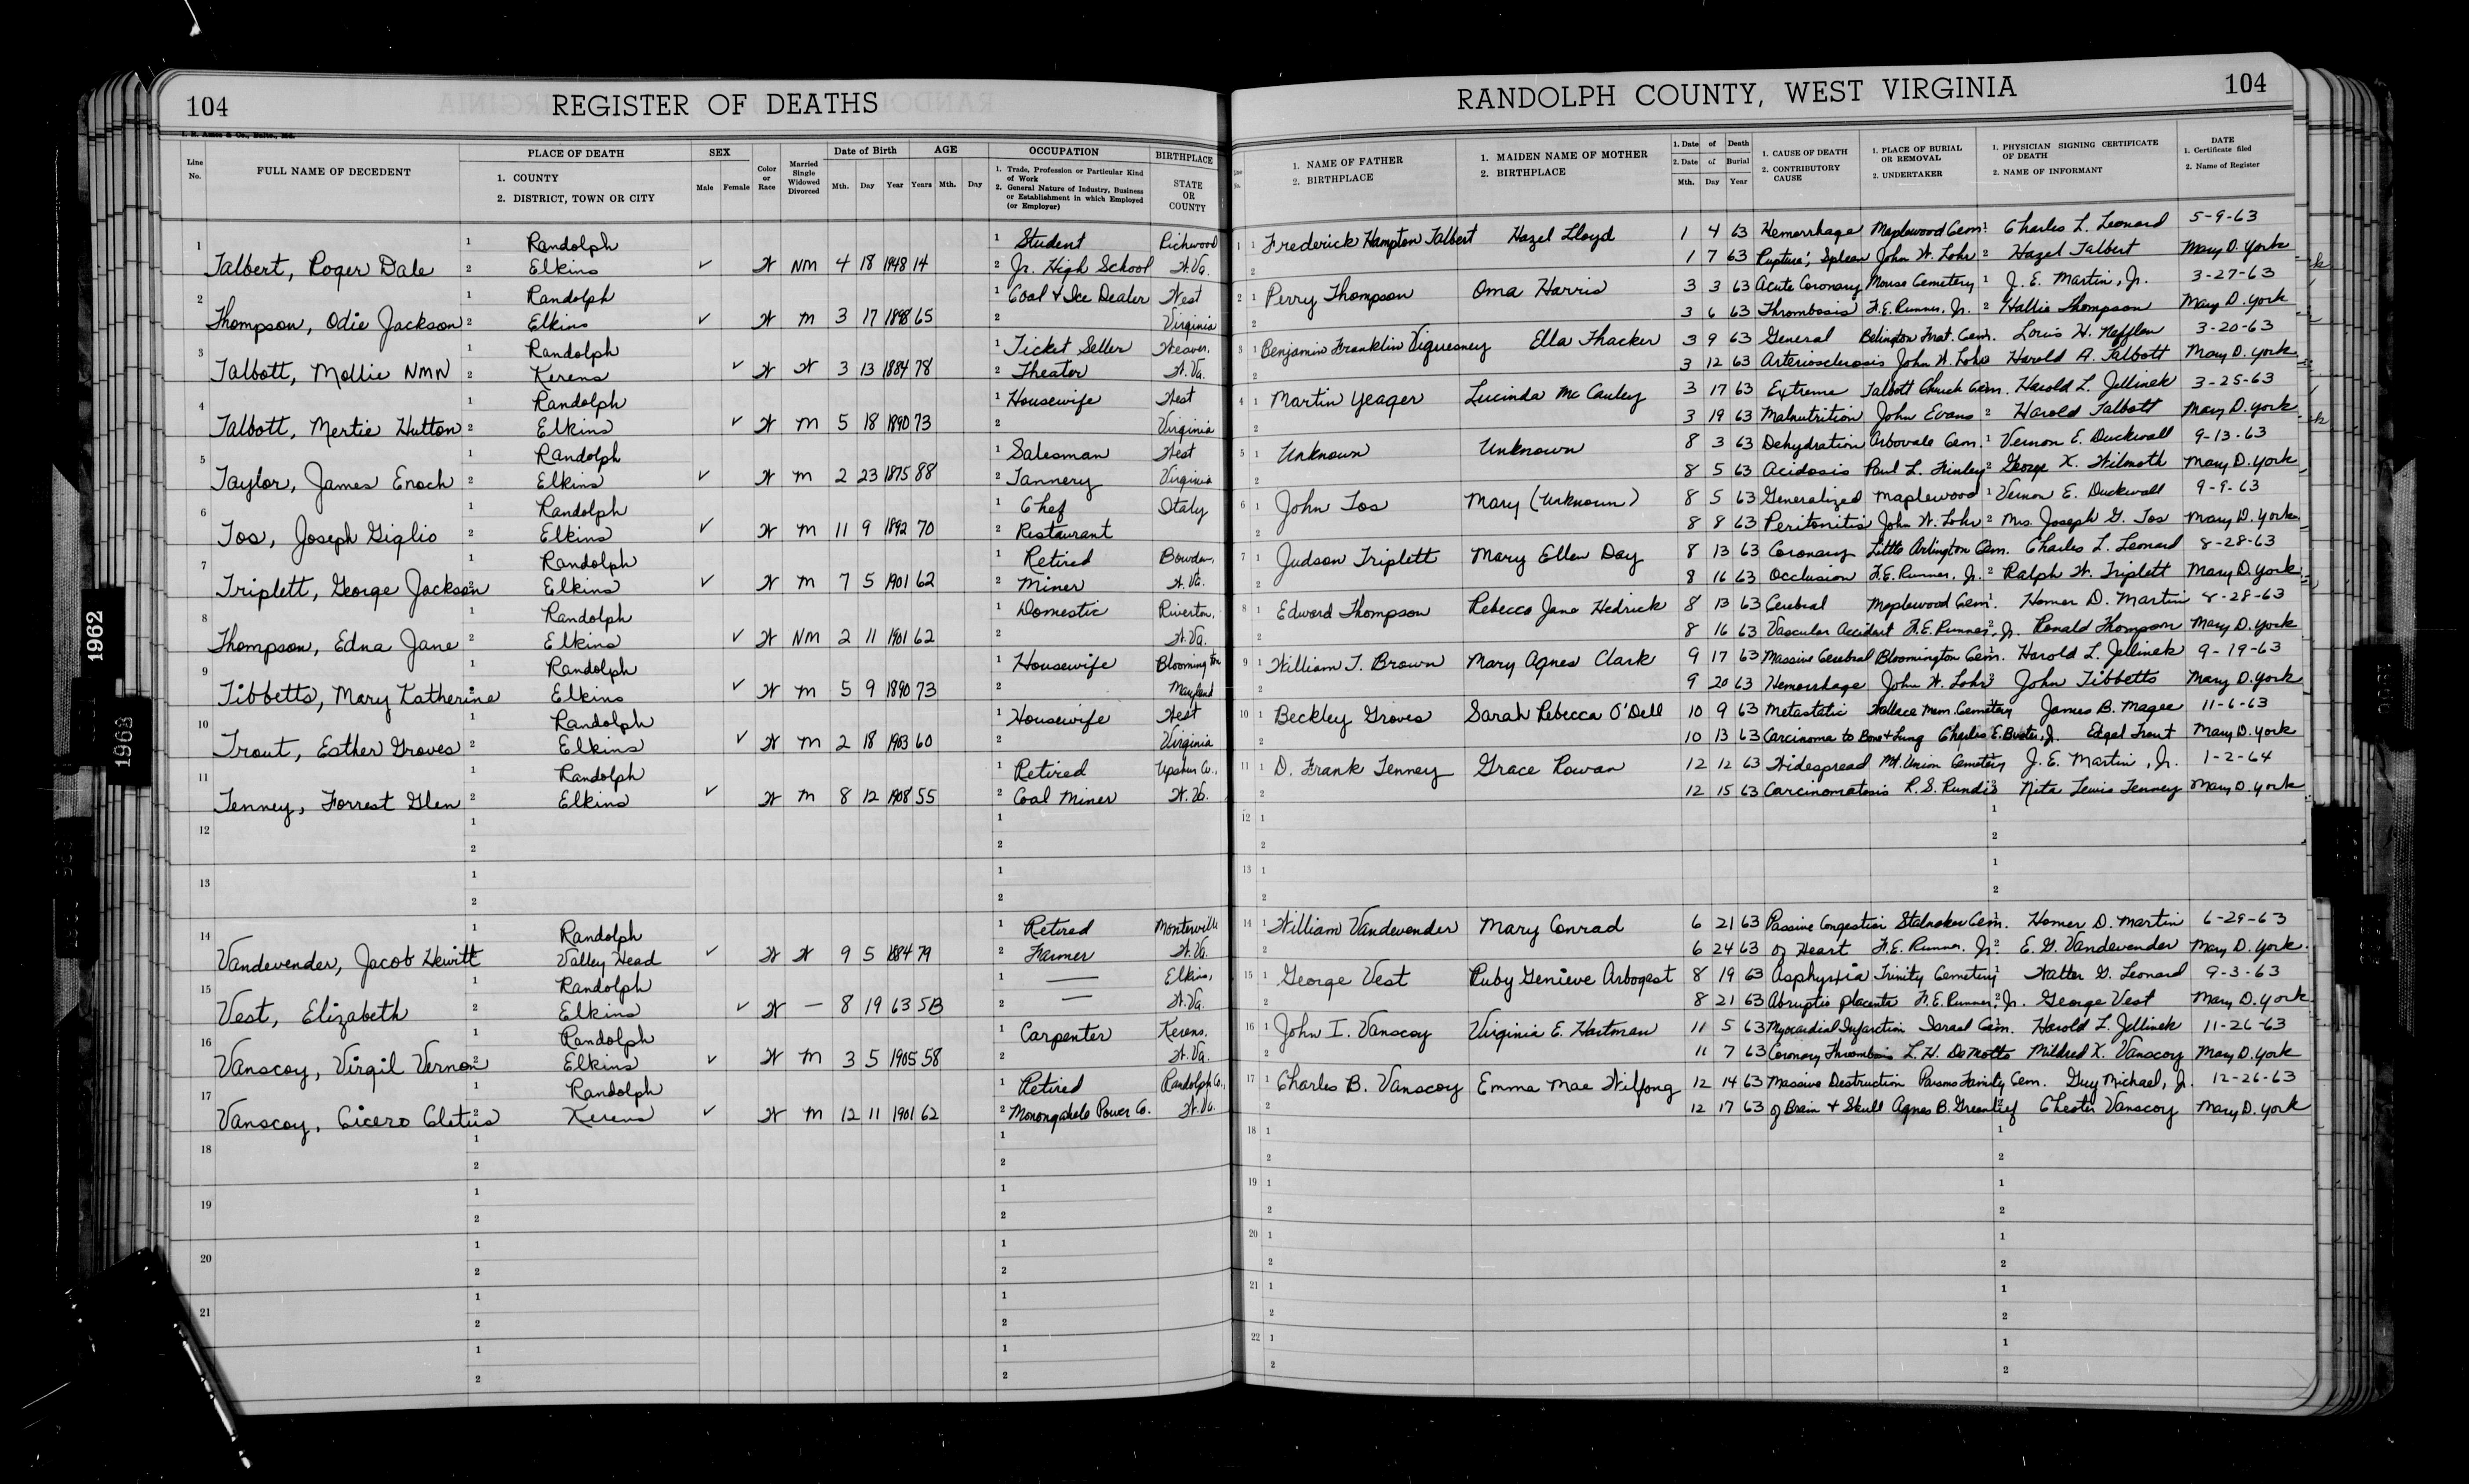 104 REGISTER OF DEATHS
RANDOLPH COUNTY, WEST VIRGINIA 104
Line No. FULL NAME OF DECEDENT PLACE OF DEATH 1. COUNTY 2. DISTRICT, TOWN OR CITY SEX Male Female Color or Race Married Single Widowed Divorced Date of Birth Mth. Day Year AGE Years Mth. Day OCCUPATION 1. Trade, Profession or Particular Kind of Work 2. General Nature of Industry, Business or Establishment in which Employed (or Employer) BIRTHPLACE STATE OR COUNTY
1. NAME OF FATHER 2. BIRTHPLACE 1. MAIDEN NAME OF MOTHER 2. BIRTHPLACE 1. Date of Death 2. Date of Burial Mth. Day Year 1. CAUSE OF DEATH 2. CONTRIBUTORY CAUSE 1. PLACE OF BURIAL OR REMOVAL 2. UNDERTAKER 1. PHYSICIAN SIGNING CERTIFICATE OF DEATH 2. NAME OF INFORMANT DATE 1. Certificate filed 2. Name of Register
1 1 Randolph 1 Student Richwood 1 1 Frederick Hampton Talbert Hazel Lloyd 1 4 63 Hemorrhage Maplewood Cem. 1 Charles L. Leonard 5-9-63
Talbert, Roger Dale 2 Elkins ✓ W NM 4 18 1948 14 2 Jr. High School W.Va. 2 1 7 63 Rupture, Spleen John W. Lohr 2 Hazel Talbert Mary D. York
2 1 Randolph 1 Coal & Ice Dealer West 2 1 Perry Thompson Oma Harris 3 3 63 Acute Coronary Mouse Cemetery 1 J. E. Martin, Jr. 3-27-63
Thompson, Odie Jackson 2 Elkins ✓ W M 3 17 1898 65 2 Virginia 2 3 6 63 Thrombosis F.E. Runner, Jr. 2 Hallie Thompson Mary D. York
3 1 Randolph 1 Ticket Seller Weaver, 3 1 Benjamin Franklin Viquesney Ella Thacker 3 9 63 General Belington Frat. Cem. Louis H. Nefflen 3-20-63
Talbott, Mollie NMN 2 Kerens ✓ W W 3 13 1884 78 2 Theater W.Va. 2 3 12 63 Arteriosclerosis John W. Lohr Harold A. Talbott Mary D. York
4 1 Randolph 1 Housewife West 4 1 Martin Yeager Lucinda McCauley 3 17 63 Extreme Talbott Church Cem. Harold L. Jellinek 3-25-63
Talbott, Mertie Hutton 2 Elkins ✓ W M 5 18 1890 73 2 Virginia 2 3 19 63 Malnutrition John Evans 2 Harold Talbott Mary D. York
5 1 Randolph 1 Salesman West 5 1 Unknown Unknown 8 3 63 Dehydration Arbovale Cem. 1 Vernon E. Duckwall 9-13-63
Taylor, James Enoch 2 Elkins ✓ W M 2 23 1875 88 2 Tannery Virginia 2 8 5 63 Acidosis Paul L. Finley 2 George K. Wilmoth Mary D. York
6 1 Randolph 1 Chef Italy 6 1 John Tos Mary (Unknown) 8 5 63 Generalized Maplewood 1 Vernon E. Duckwall 9-9-63
Tos, Joseph Giglio 2 Elkins ✓ W M 11 9 1892 70 2 Restaurant 2 8 8 63 Peritonitis John W. Lohr 2 Mrs. Joseph G. Tos Mary D. York
7 1 Randolph 1 Retired Bowden, 7 1 Judson Triplett Mary Ellen Day 8 13 63 Coronary Little Arlington Cem. Charles L. Leonard 8-28-63
Triplett, George Jackson 2 Elkins ✓ W M 7 5 1901 62 2 Miner W.Va. 2 8 16 63 Occlusion F.E. Runner, Jr. 2 Ralph W. Triplett Mary D. York
8 1 Randolph 1 Domestic Riverton, 8 1 Edward Thompson Rebecca Jane Hedrick 8 13 63 Cerebral Maplewood Cem. 1 Homer D. Martin 8-28-63
Thompson, Edna Jane 2 Elkins ✓ W NM 2 11 1901 62 2 W.Va. 2 8 16 63 Vascular Accident F.E. Runner, Jr. 2 Ronald Thompson Mary D. York
9 1 Randolph 1 Housewife Bloomington 9 1 William T. Brown Mary Agnes Clark 9 17 63 Massive Cerebral Bloomington Cem. Harold L. Jellinek 9-19-63
Tibbetts, Mary Katherine 2 Elkins ✓ W M 5 9 1890 73 2 Maryland 2 9 20 63 Hemorrhage John W. Lohr 2 John Tibbetts Mary D. York
10 1 Randolph 1 Housewife West 10 1 Beckley Groves Sarah Rebecca O'Dell 10 9 63 Metastatic Wallace Mem. Cemetery James B. Magee 11-6-63
Trout, Esther Groves 2 Elkins ✓ W M 2 18 1903 60 2 Virginia 2 10 13 63 Carcinoma to Bone & Lung Charles E. Edgel Trout Mary D. York
11 1 Randolph 1 Retired Upshur Co., 11 1 D. Frank Tenney Grace Rowan 12 12 63 Widespread Mt. Union Cemetery J. E. Martin, Jr. 1-2-64
Tenney, Forrest Glen 2 Elkins ✓ W M 8 12 1908 55 2 Coal Miner W.Va. 2 12 15 63 Carcinomatosis R. S. Nita Lewis Tenney Mary D. York
12 1 2 1 2 12 1 2 1 2
13 1 2 1 2 13 1 2 1 2
14 1 Randolph 1 Retired Monterville 14 1 William Vandevender Mary Conrad 6 21 63 Passive Congestion Stalnaker Cem. Homer D. Martin 6-29-63
Vandevender, Jacob Hewitt Valley Head ✓ W W 9 5 1884 79 2 Farmer W.Va. 2 6 24 63 of Heart F.E. Runner, Jr. 2 E. G. Vandevender Mary D. York
15 1 Randolph 1 — Elkins, 15 1 George Vest Ruby Genieve Arbogast 8 19 63 Asphyxia Trinity Cemetery 1 Walter G. Leonard 9-3-63
Vest, Elizabeth 2 Elkins ✓ W — 8 19 63 SB 2 — W.Va. 2 8 21 63 Abruptio placenta F.E. Runner, Jr. 2 George Vest Mary D. York
16 1 Randolph 1 Carpenter Kerens, 16 1 John I. Vanscoy Virginia E. Hartman 11 5 63 Myocardial Infarction Israel Cem. Harold L. Jellinek 11-26-63
Vanscoy, Virgil Vernon 2 Elkins ✓ W M 3 5 1905 58 2 W.Va. 2 11 7 63 Coronary Thrombosis L. H. DeMotto Mildred K. Vanscoy Mary D. York
17 1 Randolph 1 Retired Randolph Co., 17 1 Charles B. Vanscoy Emma Mae Wilfong 12 14 63 Massive Destruction Parsons Family Cem. Guy Michael, Jr. 12-26-63
Vanscoy, Cicero Cletus 2 Kerens ✓ W M 12 11 1901 62 2 Monongahela Power Co. W.Va. 2 12 17 63 of Brain & Skull Agnes B. Greenlief 2 Chester Vanscoy Mary D. York
18 1 2 1 2 18 1 2 1 2
19 1 2 1 2 19 1 2 1 2
20 1 2 1 2 20 1 2 1 2
21 1 2 1 2 21 1 2 1 2
1 2 1 2 22 1 2 1 2
1962
1963